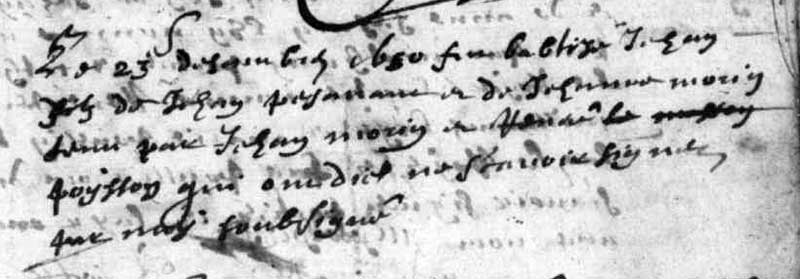 Le 23 decembre 1650 fut babtisé Jehan
filz de Jehan et de Jehanne morin
tenu par Jehan morin et Renae le
qui ont dict ne scavoir signer
par moy soubsigné